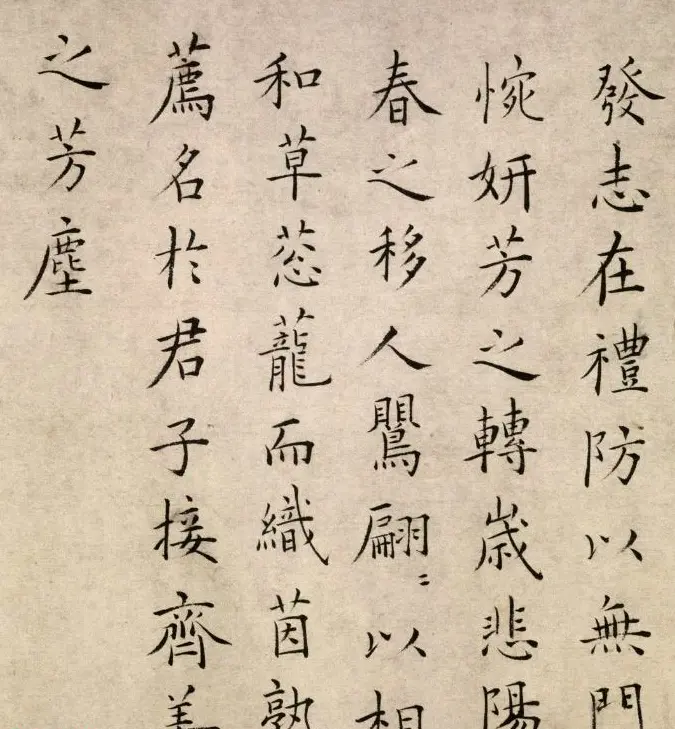 發志在禮防以無門
惋妍芳之轉歲悲陽
春之移人鸎翩〻以相
和草蒫蘢而織茵孰
薦名於君子接齊美
之芳塵